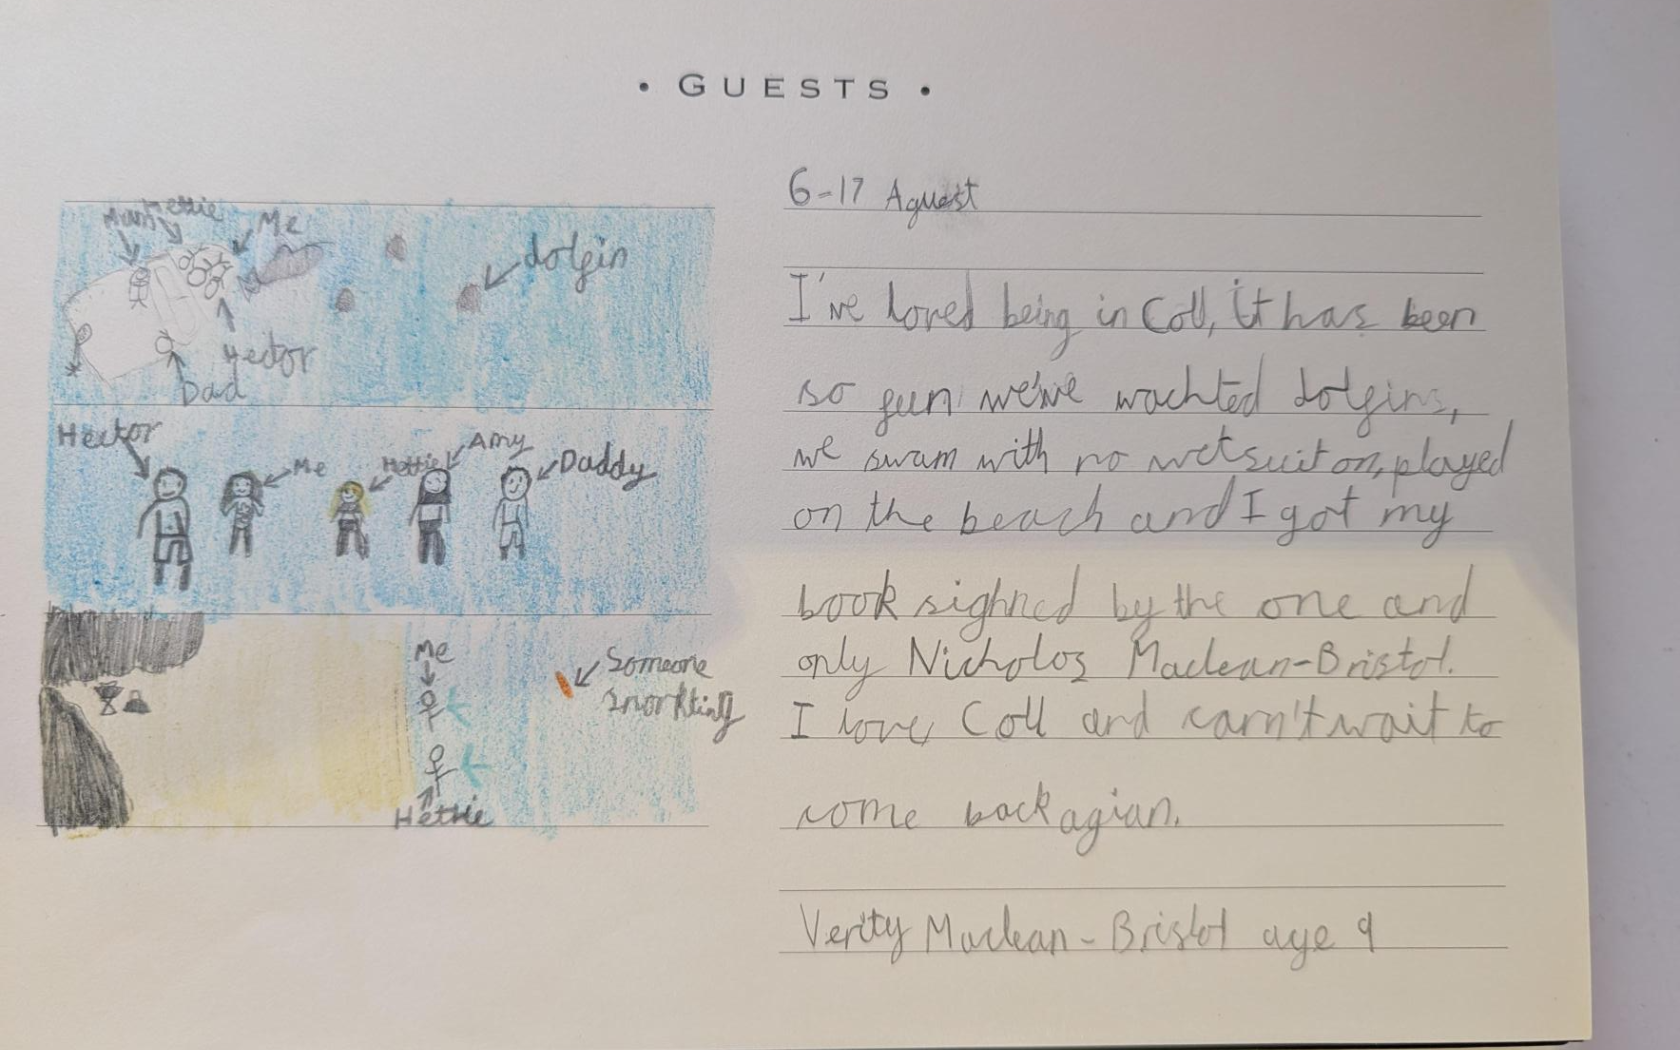 • GUESTS •
Mum Hettie Me
dolfin
Hector
Dad
Hector Me Hettie Amy Daddy
Me
Someone
snorkling
Hettie
6-17 Aguest
I've loved being in Coll, it has been
so fun we've wachted dolfins,
we swam with no wetsuit on, played
on the beach and I got my
book sighned by the one and
only Nicholos Maclean-Bristol.
I love Coll and carn't wait to
come back agian.
Verity Maclean-Bristol age 9